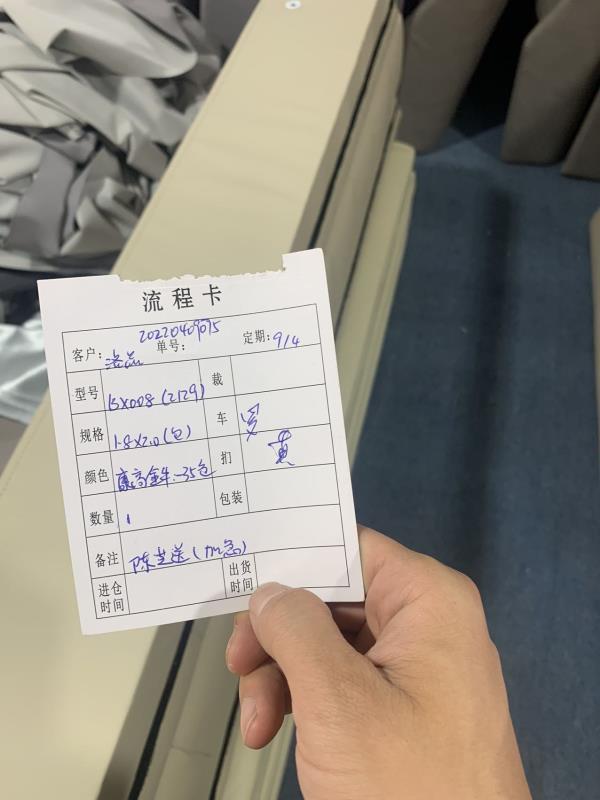 流程卡
20220409075
客户: 单号: 定期: 9/4
型号 BX008(2129) 裁
规格 1.8X2.0(包) 车
颜色 康高金牛-35仓 扪
数量 1 包装
备注 陈芝送(加急)
进仓时间 出货时间